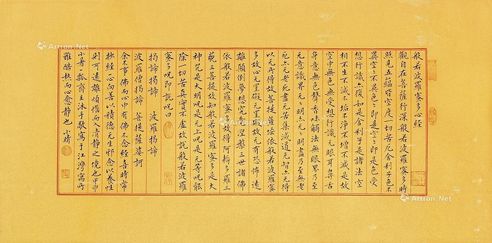 般若波羅蜜多心經
觀自在菩薩行深般若波羅蜜多時
照見五蘊皆空度一切苦厄舍利子色不
異空空不異色色即是空空即是色受
想行識亦復如是舍利子是諸法空
相不生不滅不垢不淨不增不減是故
空中無色無受想行識无眼耳鼻舌
身意無色聲香味觸法無眼界乃至
无意識界无无明亦无无明盡乃至無老
死亦无老死盡无苦集滅道无智亦无得
以无所得故菩提薩埵依般若波羅蜜
多故心无罣礙无罣礙故无有恐怖遠
離顛倒夢想究竟涅槃三世諸佛
依般若波羅蜜多故得阿耨多羅三
藐三菩提故知般若波羅蜜多是大
神咒是大明咒是无上咒是无等等咒能
除一切苦真實不虛故說般若波羅
蜜多咒即說咒曰
揭諦揭諦 波羅揭諦
波羅僧揭諦 菩提薩婆訶
Artron.Net